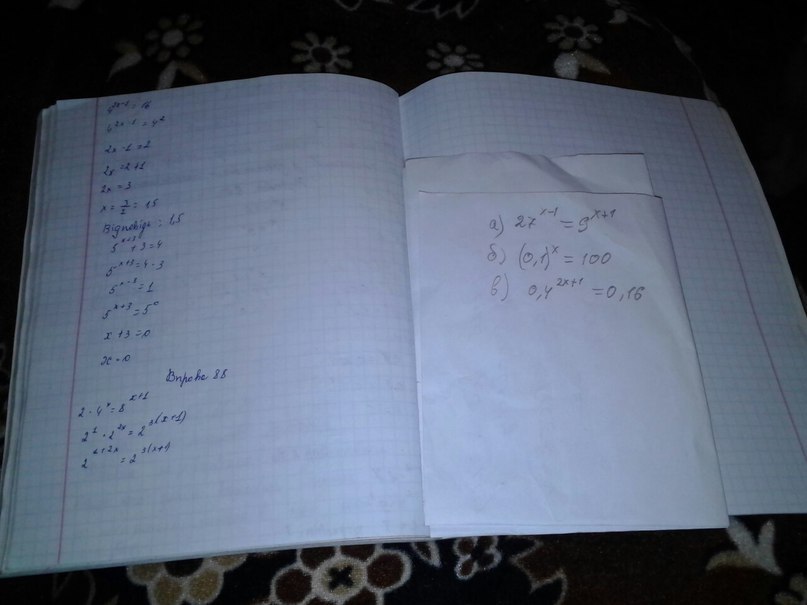 4^{2x-1} = 16
4^{2x-1} = 4^2
2x - 1 = 2
2x = 2 + 1
2x = 3
x = 3/2 = 1,5
Відповідь: 1,5
5^{x+3} + 3 = 4
5^{x+3} = 4 - 3
5^{x+3} = 1
5^{x+3} = 5^0
x + 3 = 0
x = 0
Вправа 88
2 · 4^x = 8^{x+1}
2^1 · 2^{2x} = 2^{3(x+1)}
2^{1+2x} = 2^{3(x+1)}
а) 27^{x-1} = 9^{x+1}
б) (0,1)^x = 100
в) 0,4^{2x+1} = 0,16